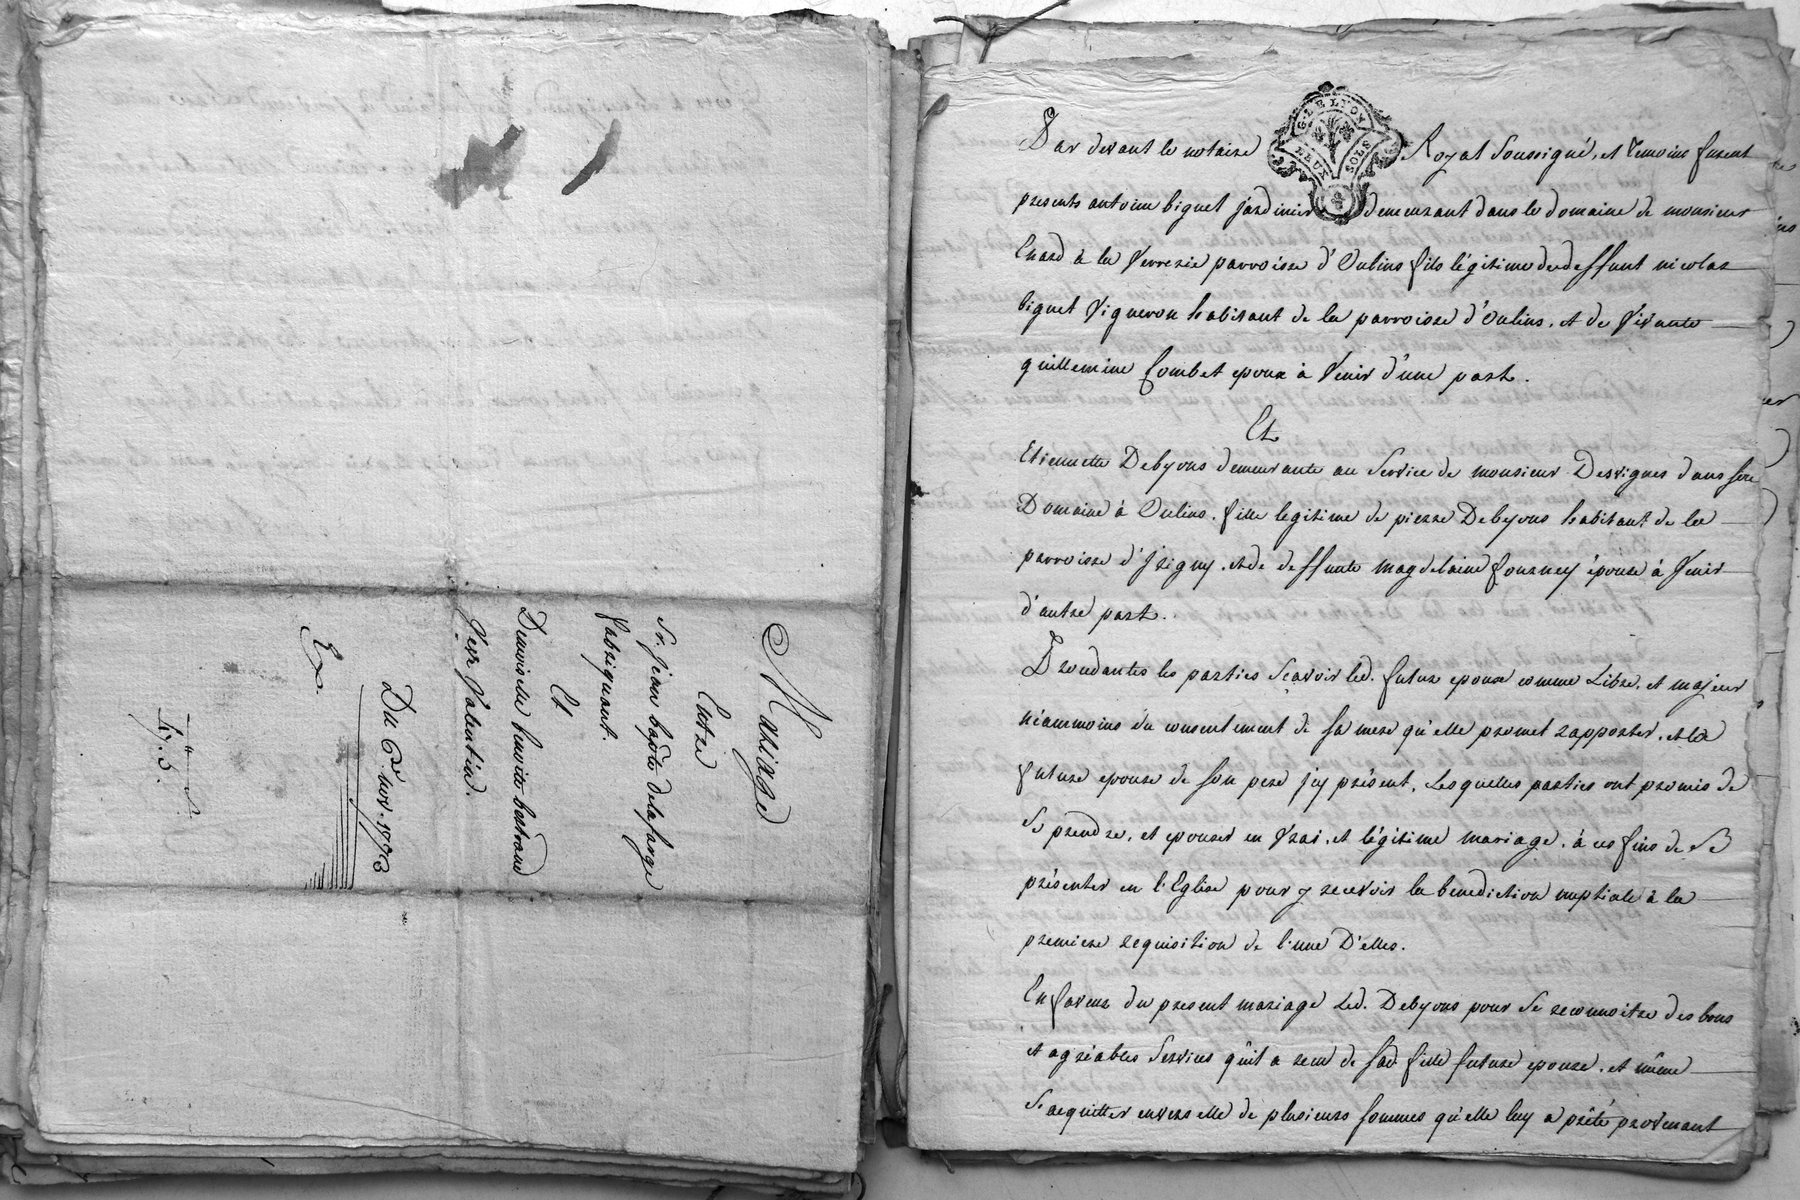 Mariage
Entre
Sr. Jean bapte delafarge
fabriquant.
Et
Demoiselle benoite bertrand
Vve Valentin.
Du 6e. nov. 1773
Ex.
G. LE LYON
DEUX SOLS
Par devant le notaire Royal soussigné, et temoins furent
presents antoine biguet jardinier demeurant dans le domaine de monsieur
Enard à la Verrerie parroisse d'Oulins fils légitime de deffunt nicolas
biguet Vigneron habitant de la parroisse d'Oulins, et de Vivante
guillemine Combet epoux à Venir d'une part.
Et
Etiennette Debyous demeurante au Service de monsieur Desvignes dans son
Domaine à Oulins, fille legitime de pierre Debyous habitant de la
parroisse d'Irigny, et de deffunte magdelaine fourney épouse à Venir
d'autre part.
Procedantes les parties Scavoir led. futur epoux comme Libre, et majeur
néammoins du consentement de sa mere qu'elle promet rapporter, et la
future epouse de son pere icy présent, Lesquelles parties ont promis de
se prendre, et epouser en Vrai, et légitime mariage, à ces fins de se
présenter en l'Eglise pour y recevoir la benediction nuptiale à la
premiere requisition de l'une D'elles.
En faveur du present mariage Led. Debyous pour se reconnoitre des bons
et agréables Services qu'il a recu de sad. fille future epouse, et même
s'acquitter envers elle de plusieurs sommes qu'elle luy a prêté provenant